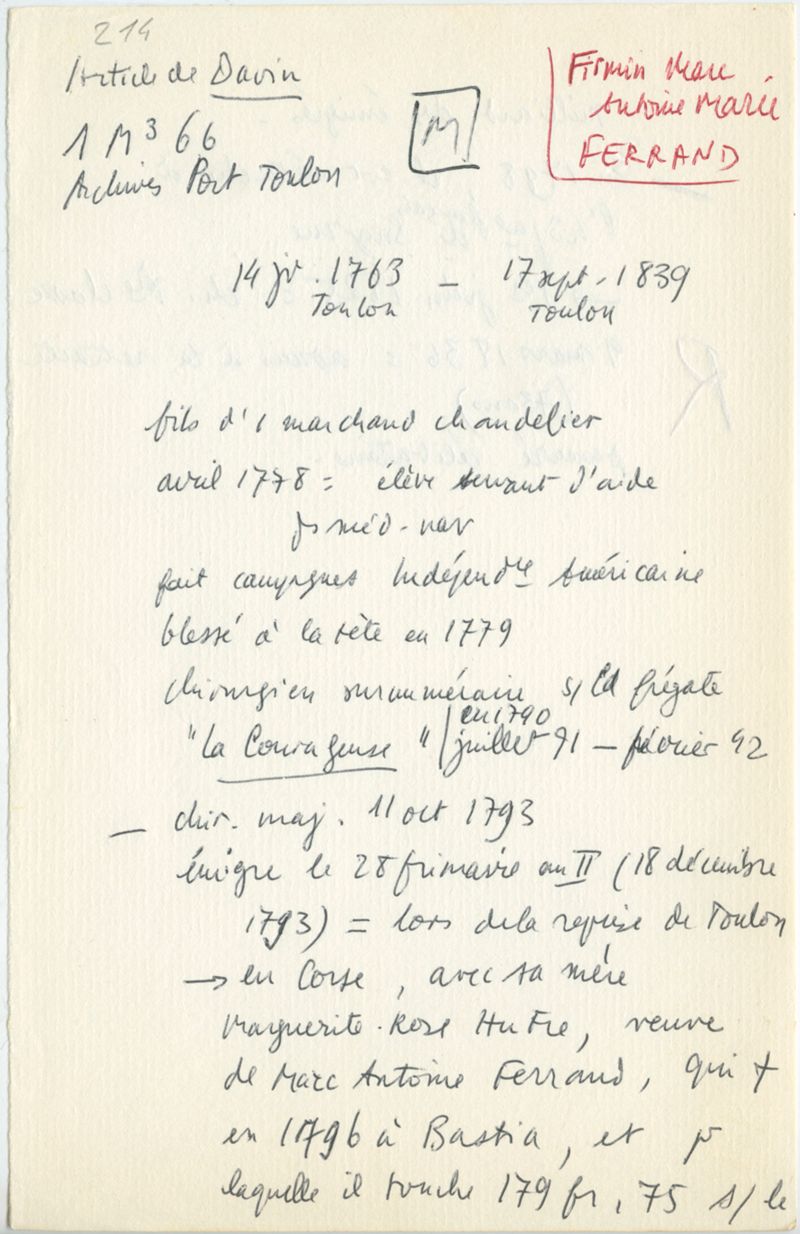 214
Article de Davin
1 M³ 66
Archives Port Toulon
M
Firmin Marc
Antoine Marie
FERRAND
14 jr. 1763 — 17 sept. 1839
Toulon Toulon
fils d'1 marchand chandelier
avril 1778 = élève servant d'aide
ds méd. nav
fait campagnes Indépendce Américaine
blessé à la tête en 1779
chirurgien surnuméraire s/ la frégate
en 1790
"La Courageuse" juillet 91 — février 92
— chir. maj. 11 oct 1793
émigre le 28 frimaire an II (18 décembre
1793) = lors de la reprise de Toulon
→ en Corse, avec sa mère
Marguerite-Rose Hutre, veuve
de Marc Antoine Ferrand, qui +
en 1796 à Bastia, et pr
laquelle il touche 179 fr, 75 s/ le
R